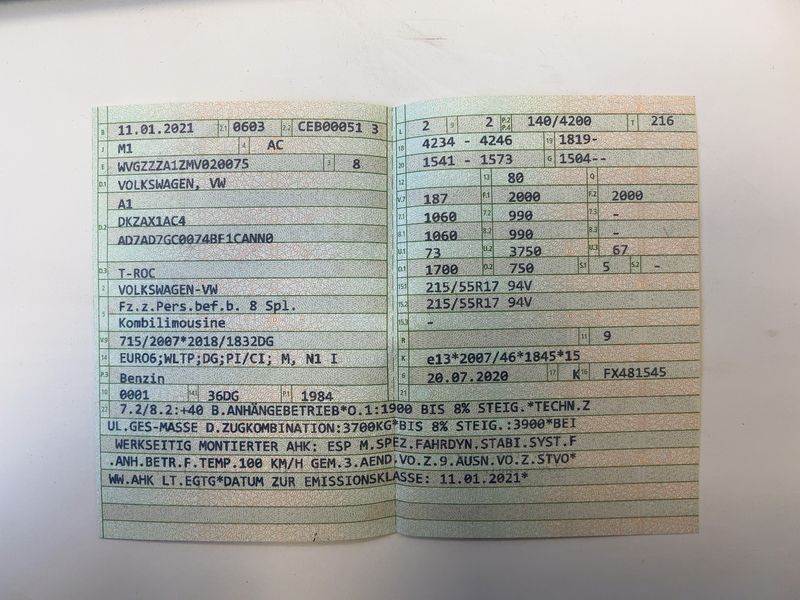 B 11.01.2021 2.1 0603 2.2 CEB00051 3
J M1 4 AC
E WVGZZZA1ZMV020075 3 8
D.1 VOLKSWAGEN, VW
A1
D.2 DKZAX1AC4
AD7AD7GC0074BF1CANN0
D.3 T-ROC
2 VOLKSWAGEN-VW
5 Fz.z.Pers.bef.b. 8 Spl.
Kombilimousine
V.9 715/2007*2018/1832DG
14 EURO6;WLTP;DG;PI/CI; M, N1 I
P.3 Benzin
10 0001 14.1 36DG P.1 1984
L 2 9 2 P.2 P.4 140/4200 T 216
18 4234 - 4246 19 1819-
20 1541 - 1573 G 1504--
12 13 80 Q
V.7 187 F.1 2000 F.2 2000
7.1 1060 7.2 990 7.3 -
8.1 1060 8.2 990 8.3 -
U.1 73 U.2 3750 U.3 67
O.1 1700 O.2 750 S.1 5 S.2 -
15.1 215/55R17 94V
15.2 215/55R17 94V
15.3 -
R 11 9
K e13*2007/46*1845*15
6 20.07.2020 17 K 16 FX481545
21
22 7.2/8.2:+40 B.ANHÄNGEBETRIEB*O.1:1900 BIS 8% STEIG.*TECHN.Z
UL.GES-MASSE D.ZUGKOMBINATION:3700KG*BIS 8% STEIG.:3900*BEI
WERKSEITIG MONTIERTER AHK: ESP M.SPEZ.FAHRDYN.STABI.SYST.F
.ANH.BETR.F.TEMP.100 KM/H GEM.3.AEND.VO.Z.9.AUSN.VO.Z.STVO*
WW.AHK LT.EGTG*DATUM ZUR EMISSIONSKLASSE: 11.01.2021*